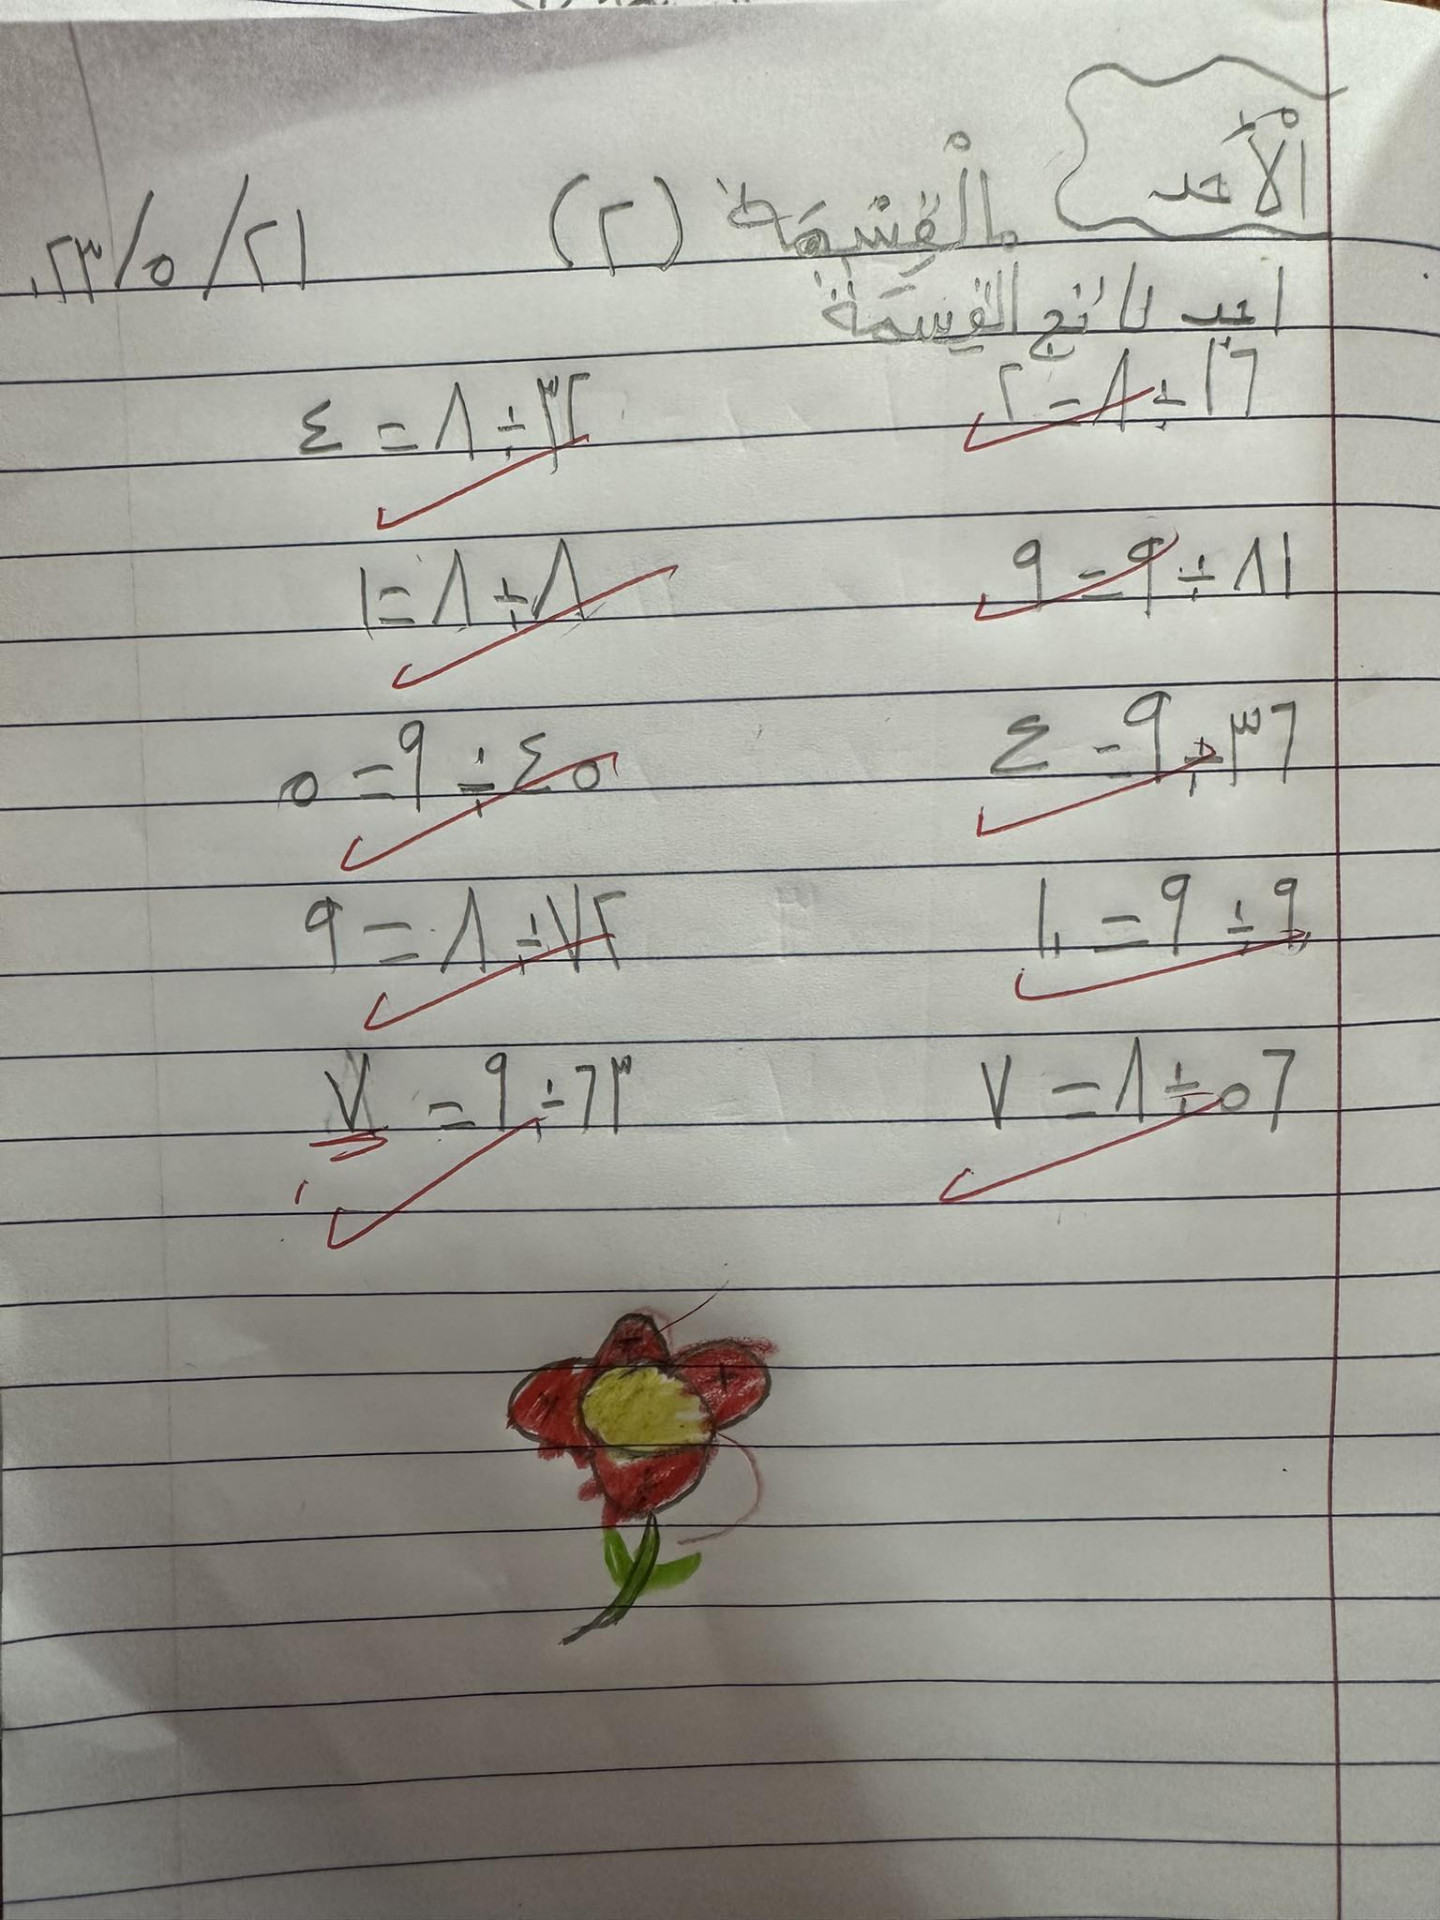 الْأَحد
الْقِسْمَة (٢) ٢١/٥/٢٠٢٣
اجد ناتج القِسمَة
١٦÷٨=٢ ٣٢÷٨=٤
٨١÷٩=٩ ٨÷٨=١
٣٦÷٩=٤ ٤٥÷٩=٥
٩÷٩=١ ٧٢÷٨=٩
٥٦÷٨=٧ ٦٣÷٩=٧